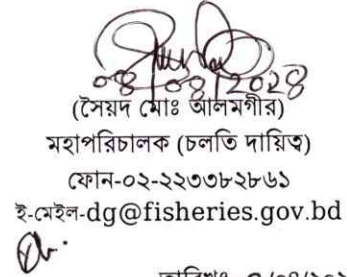 ০৪/০৪/2024
(সৈয়দ মোঃ আলমগীর)
মহাপরিচালক (চলতি দায়িত্ব)
ফোন-০২-২২৩৩৮২৮৬১
ই-মেইল-dg@fisheries.gov.bd